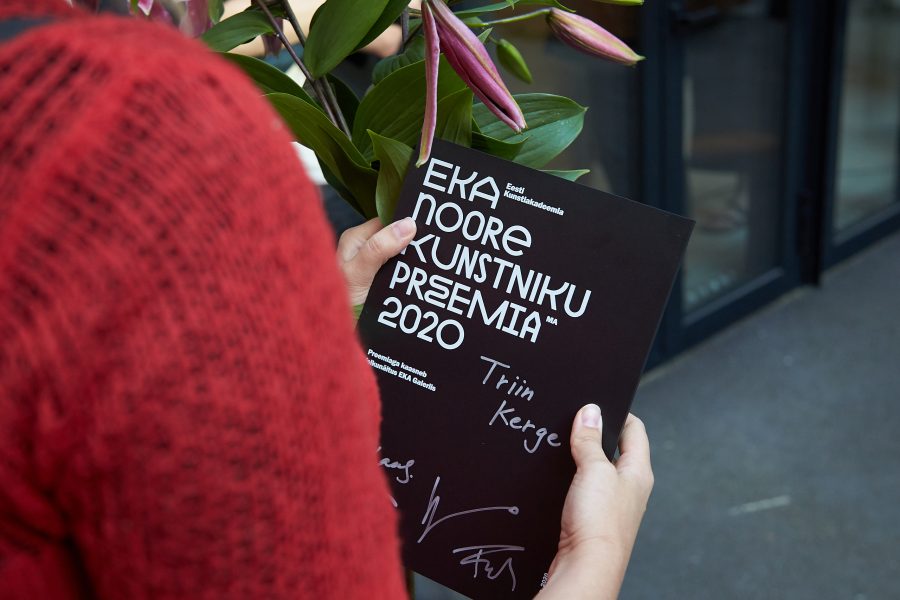 EKA
Eesti
Kunstiakadeemia
NOORE
KUNSTNIKU
PREEMIA MA
2020
Preemiaga kaasneb
EKA Galeriis
Triin
Kerge
2020